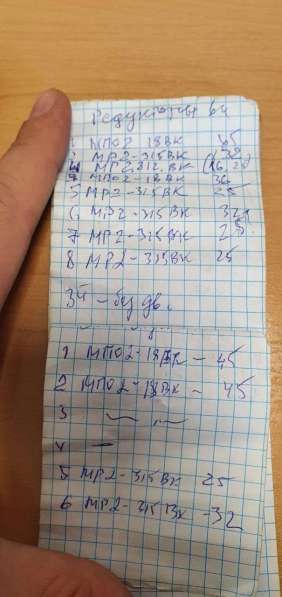 Редукторы б/у
1 МПО2-18ВК 45
2 МР2-315ВК 32
4 МР2 315 ВК (16, 25)
4 МПО2-18ВК 36
5 МР2-315ВК 25
6 МР2-315ВК 32
7 МР2-315ВК 25
8 МР2-315ВК 25
1 МПО2-18ВК - 45
2 МПО2-18ВК - 45
3
4 —
5 МР2-315ВК 25
6 МР2-315ВК -32